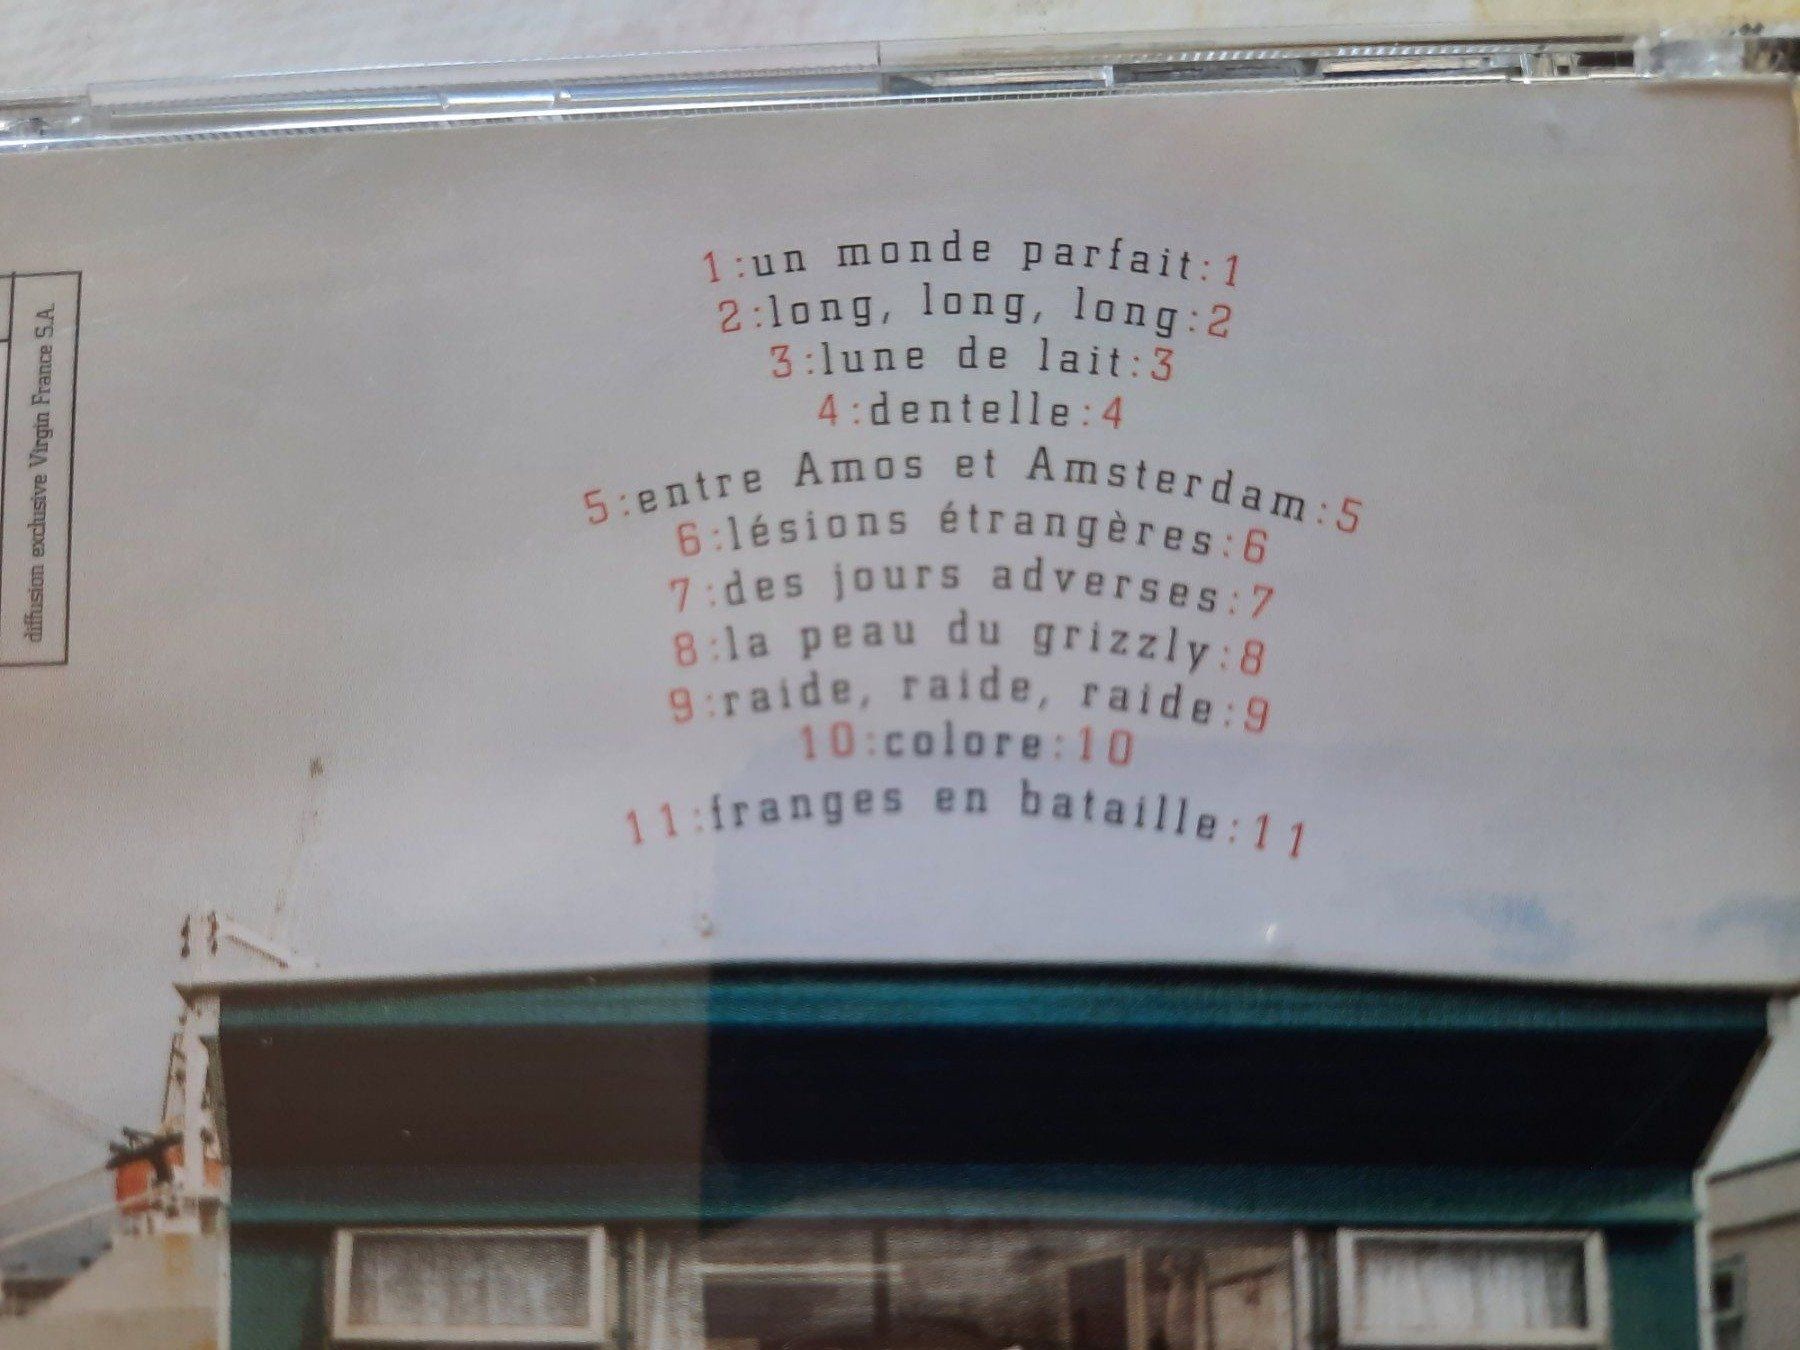 1:un monde parfait:1
2:long, long, long:2
3:lune de lait:3
4:dentelle:4
5:entre Amos et Amsterdam:5
6:lésions étrangères:6
7:des jours adverses:7
8:la peau du grizzly:8
9:raide, raide, raide:9
10:colore:10
11:franges en bataille:11
diffusion exclusive Virgin France S.A.